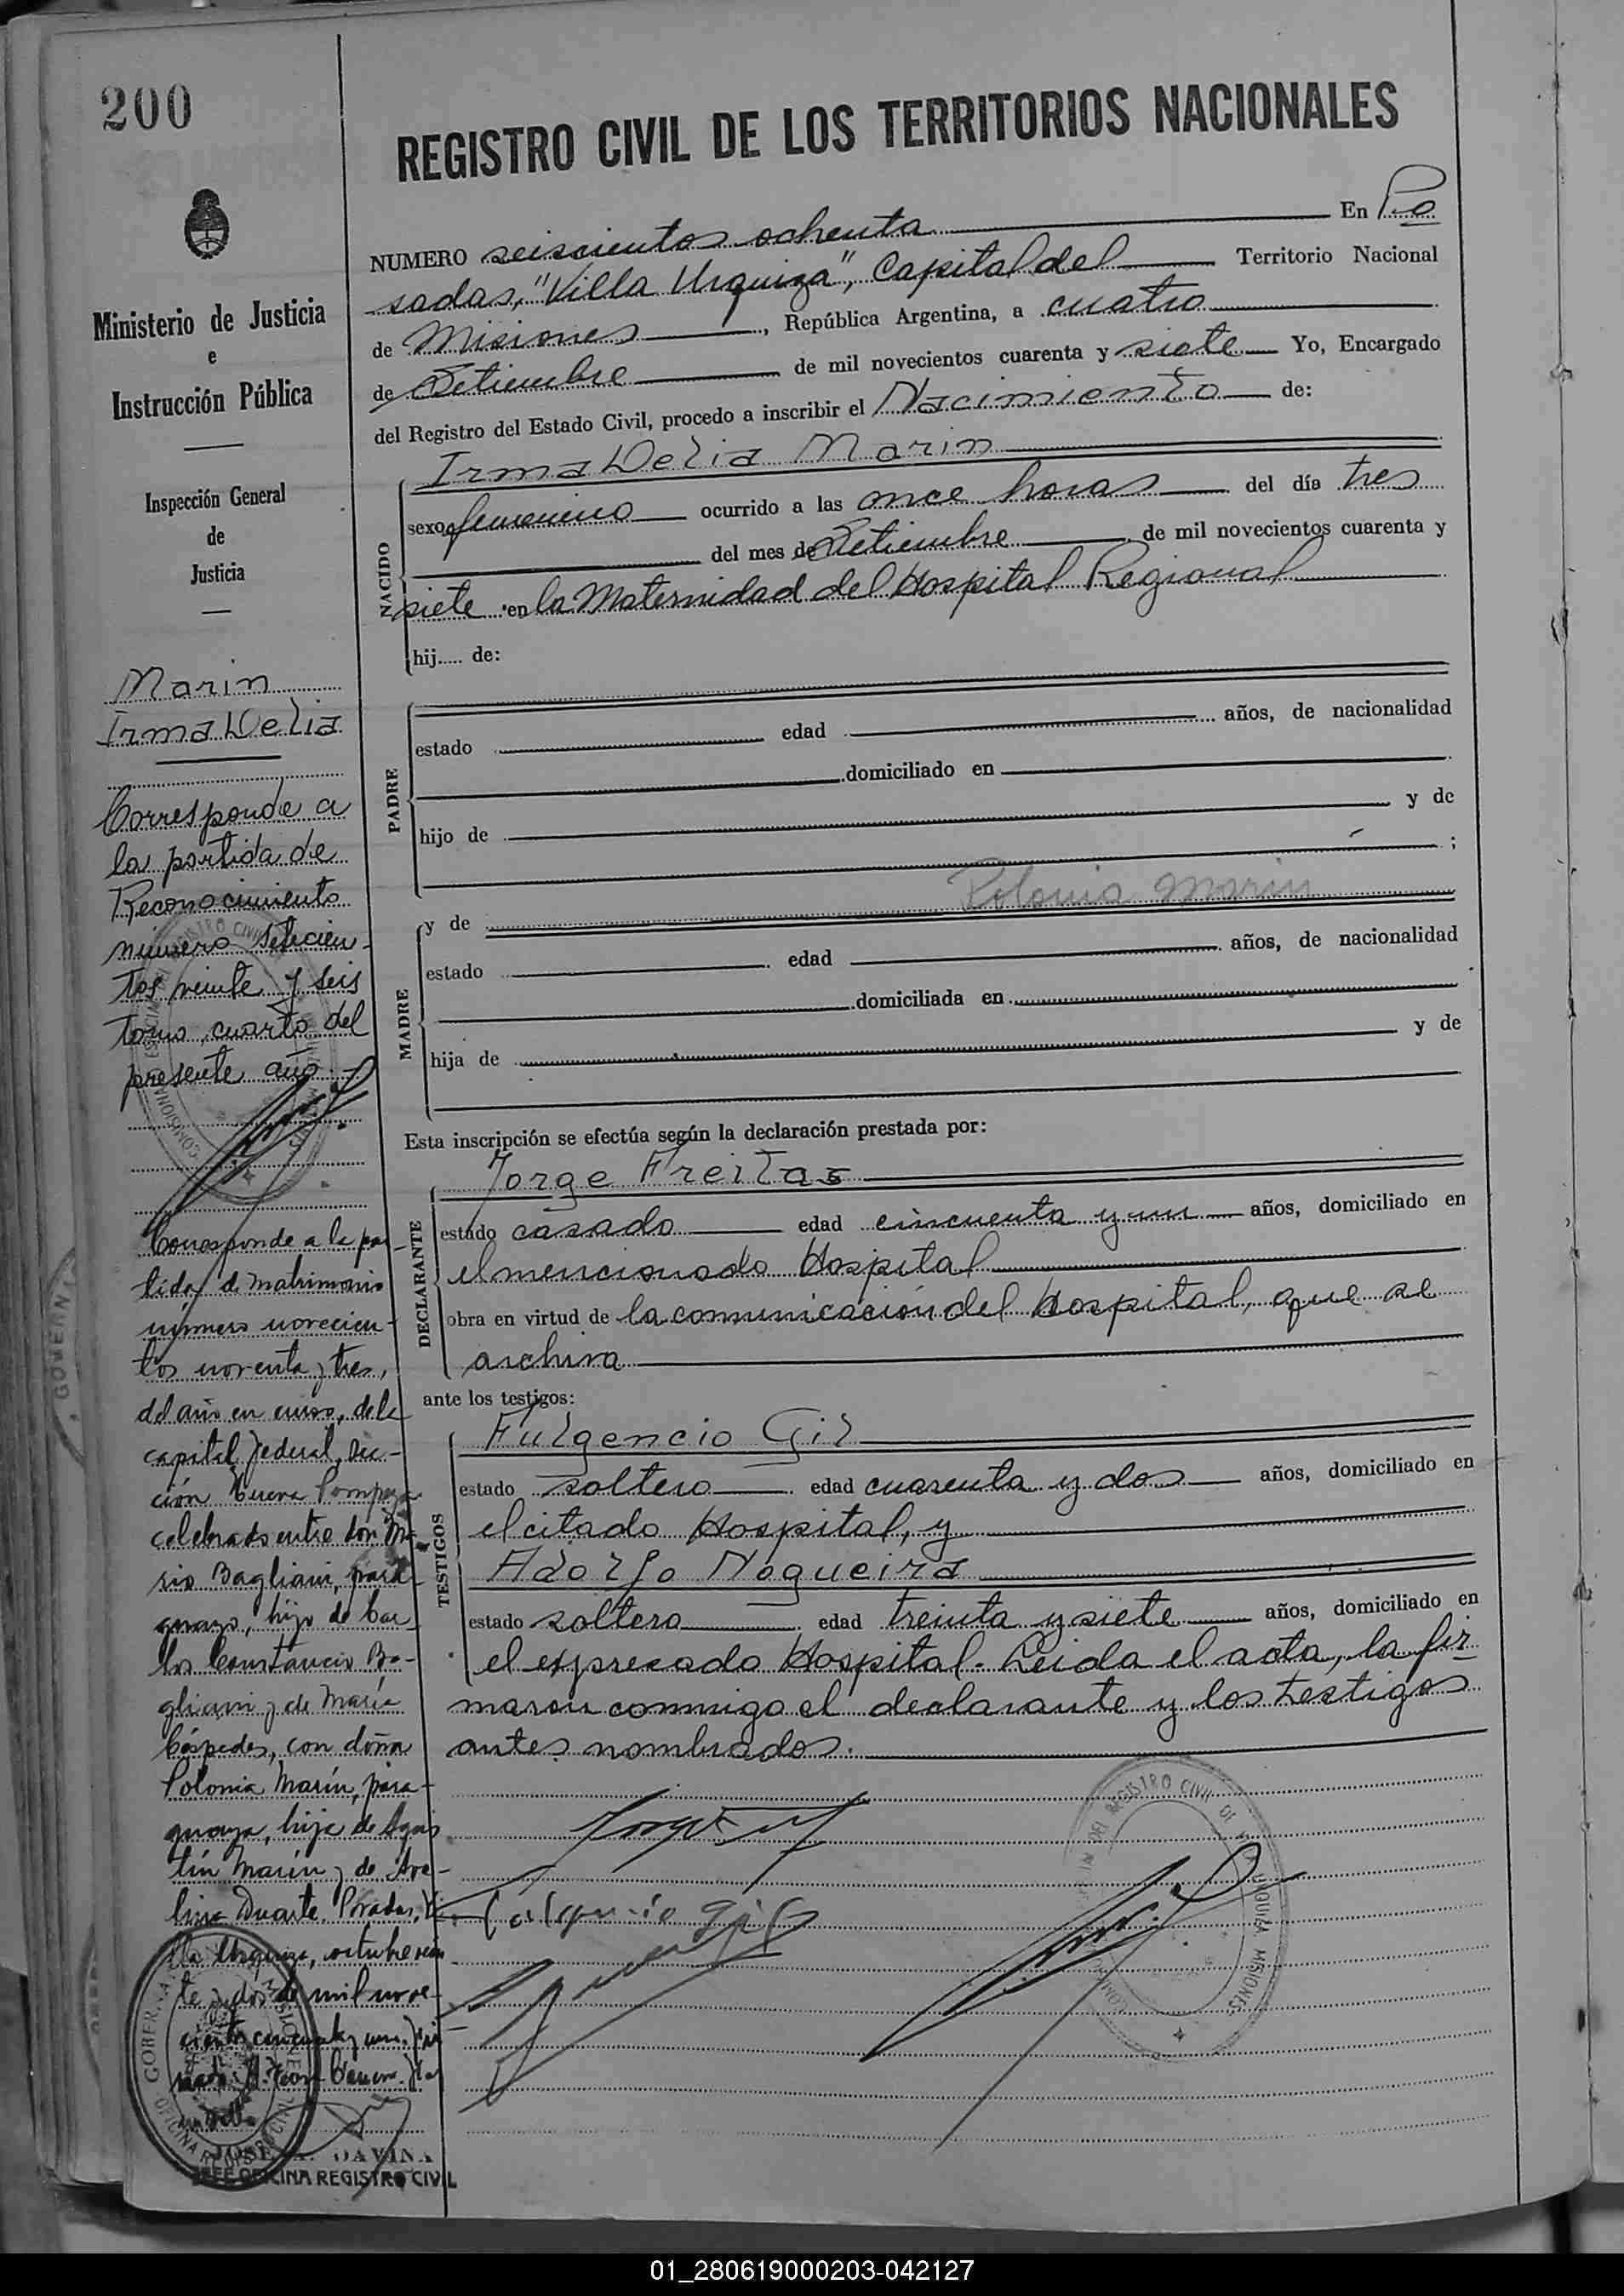 200
Ministerio de Justicia
e
Instrucción Pública
Inspección General
de
Justicia
Marin
Irma Delia
Corresponde a
la partida de
Reconocimiento
número setecien-
tos veinte y seis
tomo cuarto del
presente año.
Corresponde a la par-
tida de matrimonio
número novecien-
tos noventa y tres,
del año en curso, de la
capital federal, sec-
ción Nueva Pompeya
celebrado entre don Ma-
rio Bagliani, para-
guayo, hijo de Car-
los Constancio Ba-
gliani y de María
Céspedes, con doña
Polonia Marín, para-
guaya, hija de Agus
tín Marín y de Ave-
lina Duarte. Posadas, Vi-
lla Urquiza, octubre vein
te y dos de mil nove-
cientos cincuenta y uno.
JOSE A. DAVIÑA
JEFE OFICINA REGISTRO CIVIL
REGISTRO CIVIL DE LOS TERRITORIOS NACIONALES
NUMERO seiscientos ochenta En Po
sadas, "Villa Urquiza", Capital del Territorio Nacional
de Misiones, República Argentina, a cuatro
de Setiembre de mil novecientos cuarenta y siete Yo, Encargado
del Registro del Estado Civil, procedo a inscribir el Nacimiento de:
NACIDO
Irma Delia Marin
sexo femenino ocurrido a las once horas del día tres
del mes de Setiembre de mil novecientos cuarenta y
siete en la Maternidad del Hospital Regional
hij..... de:
PADRE
estado edad años, de nacionalidad
domiciliado en
hijo de y de
;
MADRE
y de Polonia Marin
estado edad años, de nacionalidad
domiciliada en
hija de y de
Esta inscripción se efectúa según la declaración prestada por:
DECLARANTE
Jorge Freitas
estado casado edad cincuenta y un años, domiciliado en
el mencionado Hospital
obra en virtud de la comunicación del Hospital, que se
archiva
ante los testigos:
TESTIGOS
Fulgencio Gil
estado soltero edad cuarenta y dos años, domiciliado en
el citado Hospital, y
Adolfo Nogueira
estado soltero edad treinta y siete años, domiciliado en
el expresado Hospital. Leida el acta, la fir
maron conmigo el declarante y los testigos
antes nombrados.
01_280619000203-042127